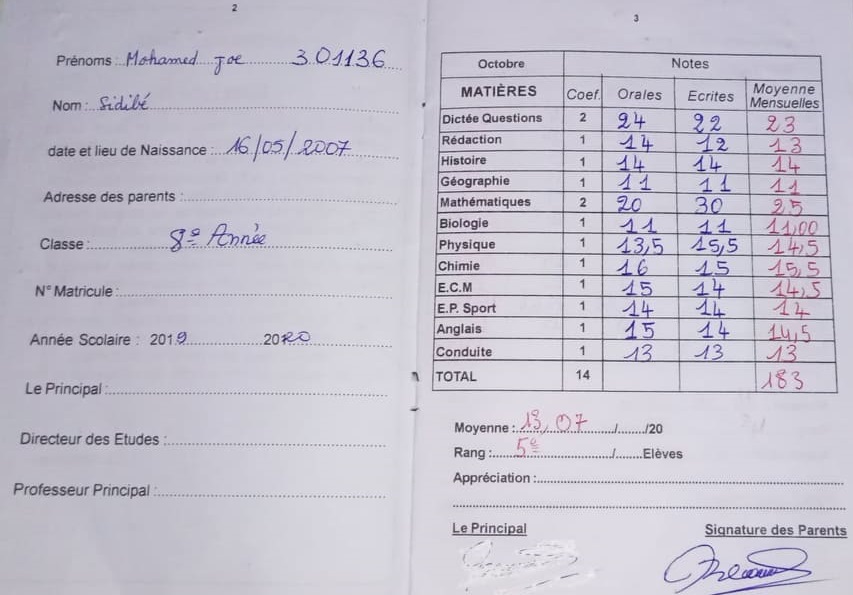 2
Prénoms : Mohamed Joe 301136
Nom : Sidibé
date et lieu de Naissance : 16/05/2007
Adresse des parents :
Classe : 8e Année
N° Matricule :
Année Scolaire : 2019 2020
Le Principal :
Directeur des Etudes :
Professeur Principal :
3
Octobre Notes
MATIÈRES Coef. Orales Ecrites Moyenne Mensuelles
Dictée Questions 2 24 22 23
Rédaction 1 14 12 13
Histoire 1 14 14 14
Géographie 1 11 11 11
Mathématiques 2 20 30 25
Biologie 1 11 11 11,00
Physique 1 13,5 15,5 14,5
Chimie 1 16 15 15,5
E.C.M 1 15 14 14,5
E.P. Sport 1 14 14 14
Anglais 1 15 14 14,5
Conduite 1 13 13 13
TOTAL 14 183
Moyenne : 13,07 / /20
Rang : 5e / Elèves
Appréciation :
Le Principal Signature des Parents